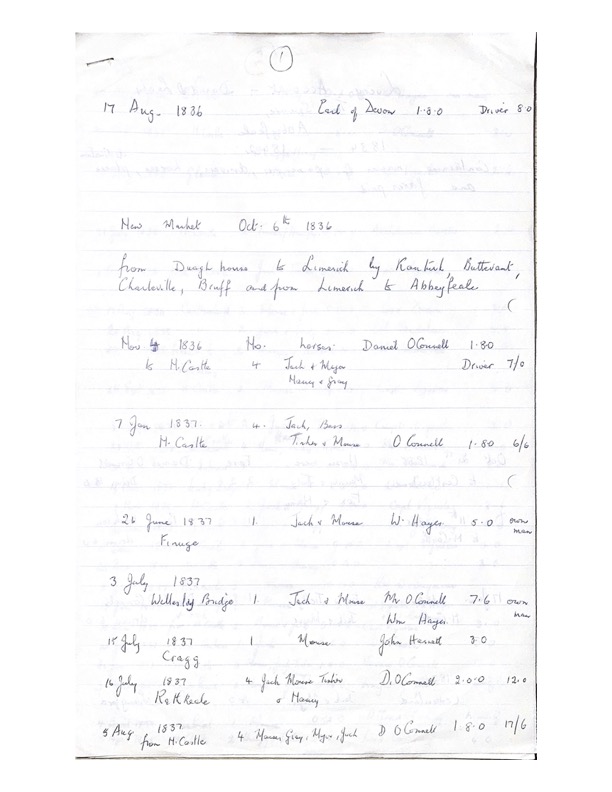 1
17 Aug. 1836 Earl of Devon 1.8.0 Driver 8.0
New Market Oct. 6th 1836
from Duagh house to Limerick by Kanturk, Buttevant,
Charleville, Bruff and from Limerick to Abbeyfeale
(
Nov 4 1836 No. horses Daniel OConnell 1.8.0
to N.Castle 4 Jack & Major Driver 7/0
Nancy & Gray
7 Jan 1837. 4. Jack,
N. Castle & Mouse O Connell 1.80 6/6
(
26 June 1837 1. Jack & Mouse W. Hayes 5.0 own
man
Finuge
3 July 1837
Wellesley Bridge 1 Jack & Mouse Mr OConnell 7.6 own
man
Wm Hayes
15 July 1837 1 Mouse. John 3.0
Cragg
16 July 1837 4 Jack Mouse D. OConnell 2.0.0 12.0
Rathkeale & Nancy
5 Aug 1837 4. Gray, Major, Jack D OConnell 1.8.0 17/6
from N.Castle